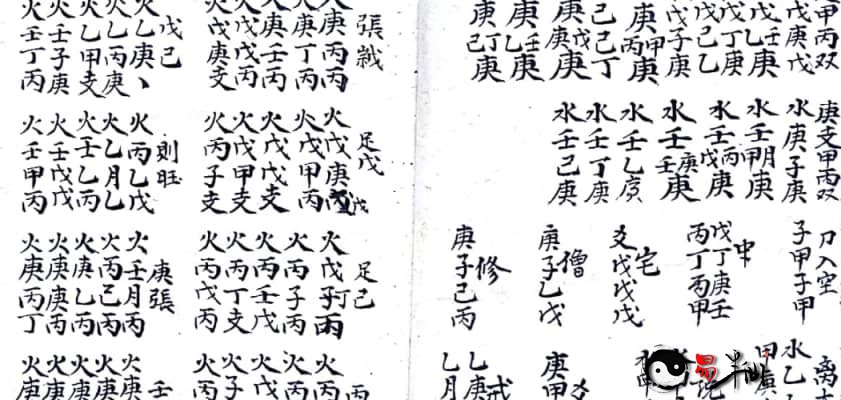 甲丙双
戊庚戊
戊丁庚
戊己乙
戊子庚
庚丙甲庚
己己丁
庚戊庚
庚乙壬庚
庚己丁庚
庚支甲丙双
水庚子庚
水壬甲月庚
水壬戊丙庚
水壬庚庚
水壬乙庚
水壬丁庚
水壬己庚
刀入空
子甲子甲
中
戊丁庚壬
丙丁丙甲
宅
爻戊戊戊
僧
庚子乙戊
修
庚子己丙
离
水乙
爻
庚甲
戒
乙庚
乙月
張
火庚丙丙
火庚丁丙
火庚壬丙
火戊戊丙
火戊庚支
戊己
火乙庚
火乙丙庚
火乙甲支
火壬子庚
火壬丁丙
足戊
火戊庚
火戊甲丙
火戊戊支
火戊甲支
火丙子支
则旺
火丙乙戊
火乙月乙
火壬乙丙
火壬戊戊
火壬甲丙
足己
火戊子丙
火丙子丙
火丙壬戊
火丙丁支
火丙戊丙
庚張
火壬月丙
火丙己丙
火庚乙丙
火庚庚丙
火庚丙丁
丙
火丙
火丙
火戊
火子
火丙
壬
火庚
火庚
火庚
火庚
火庚
易